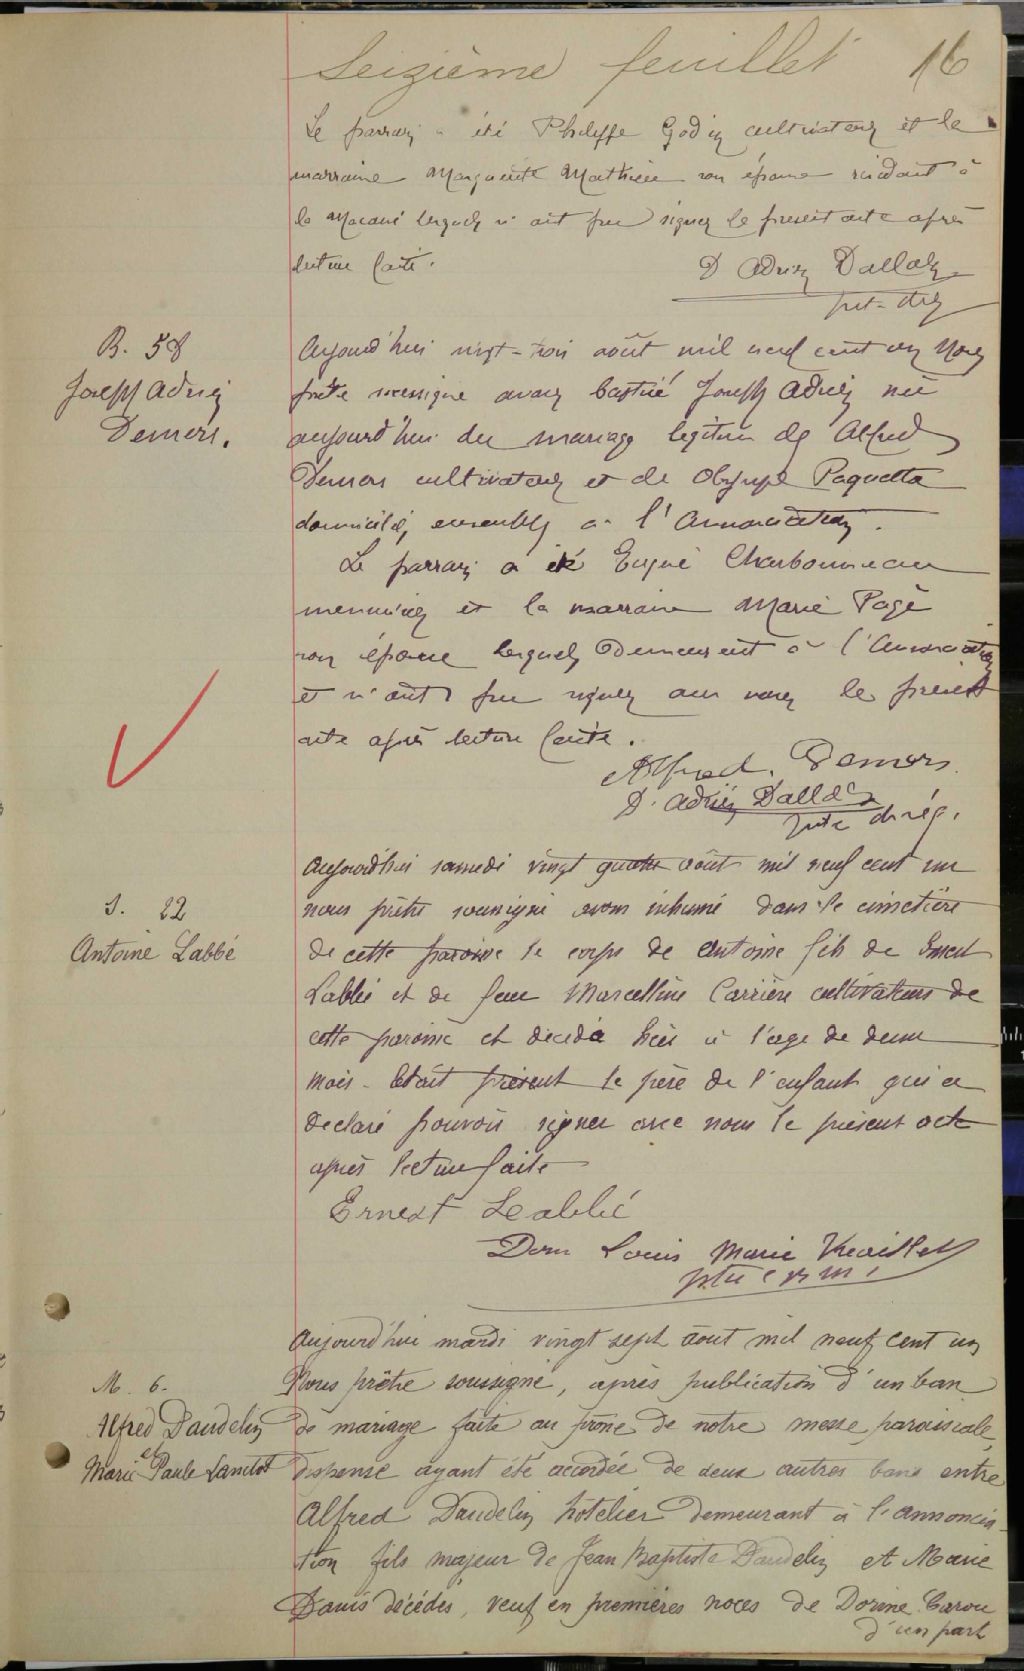 Seizième feuillet 16
Le parrain a été Philippe Godin cultivateur et la
marraine Marguerite Mathieu son épouse résidant à
la Macaui lesquels n'ont pu signer le present acte après
lecture faite.
D Adrien Dallaly
B. 58
Joseph Adrien
Demers.
Aujourd'hui vingt-trois août mil neuf cent un Nous
prêtre soussigné avons baptisé Joseph Adrien né
aujourd'hui du mariage légitime de Alfred
Demers cultivateur et de Olympe Paquette
domiciliés ensemble à l'Annonciation.
Le parrain a été Charbonneau
menuisier et la marraine Marie Pagé
son épouse lesquels demeurent à l'Annonciation
et n'ont pu signer avec nous le présent
acte après lecture faite.
Alfred. Demers.
D. Adrien
ptre
S. 22
Antoine Labbé
Aujourd'hui samedi vingt quatre août mil neuf cent un
nous prêtre soussigné avons inhumé dans le cimetière
de cette paroisse le corps de Antoine fils de Ernest
Labbé et de feue Marcelline Carrière cultivateurs de
cette paroisse et décédé hier à l'age de deux
mois. Etait présent le père de l'enfant qui a
declaré pouvoir signer avec nous le présent acte
après lecture faite
Ernest Leabbé
Dom Louis Marie
ptre c r m i
M. 6.
Alfred Daudelin
et
Marie Paule Lanctot
Aujourd'hui mardi vingt sept août mil neuf cent un
Nous prêtre soussigné, après publication d'un ban
de mariage faite au prône de notre messe paroissiale,
dispense ayant été accordée de deux autres bans entre
Alfred Daudelin hôtelier demeurant à l'annoncia-
tion fils majeur de Jean Baptiste Daudelin et Marie
Danis décédés, veuf en premières noces de Dorine Carou
d'un part